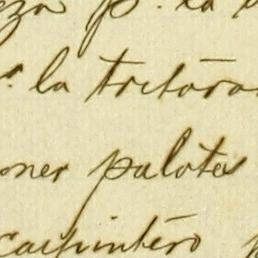 eza p.ª la
.ª la tritura
oner palotes
carpintero p